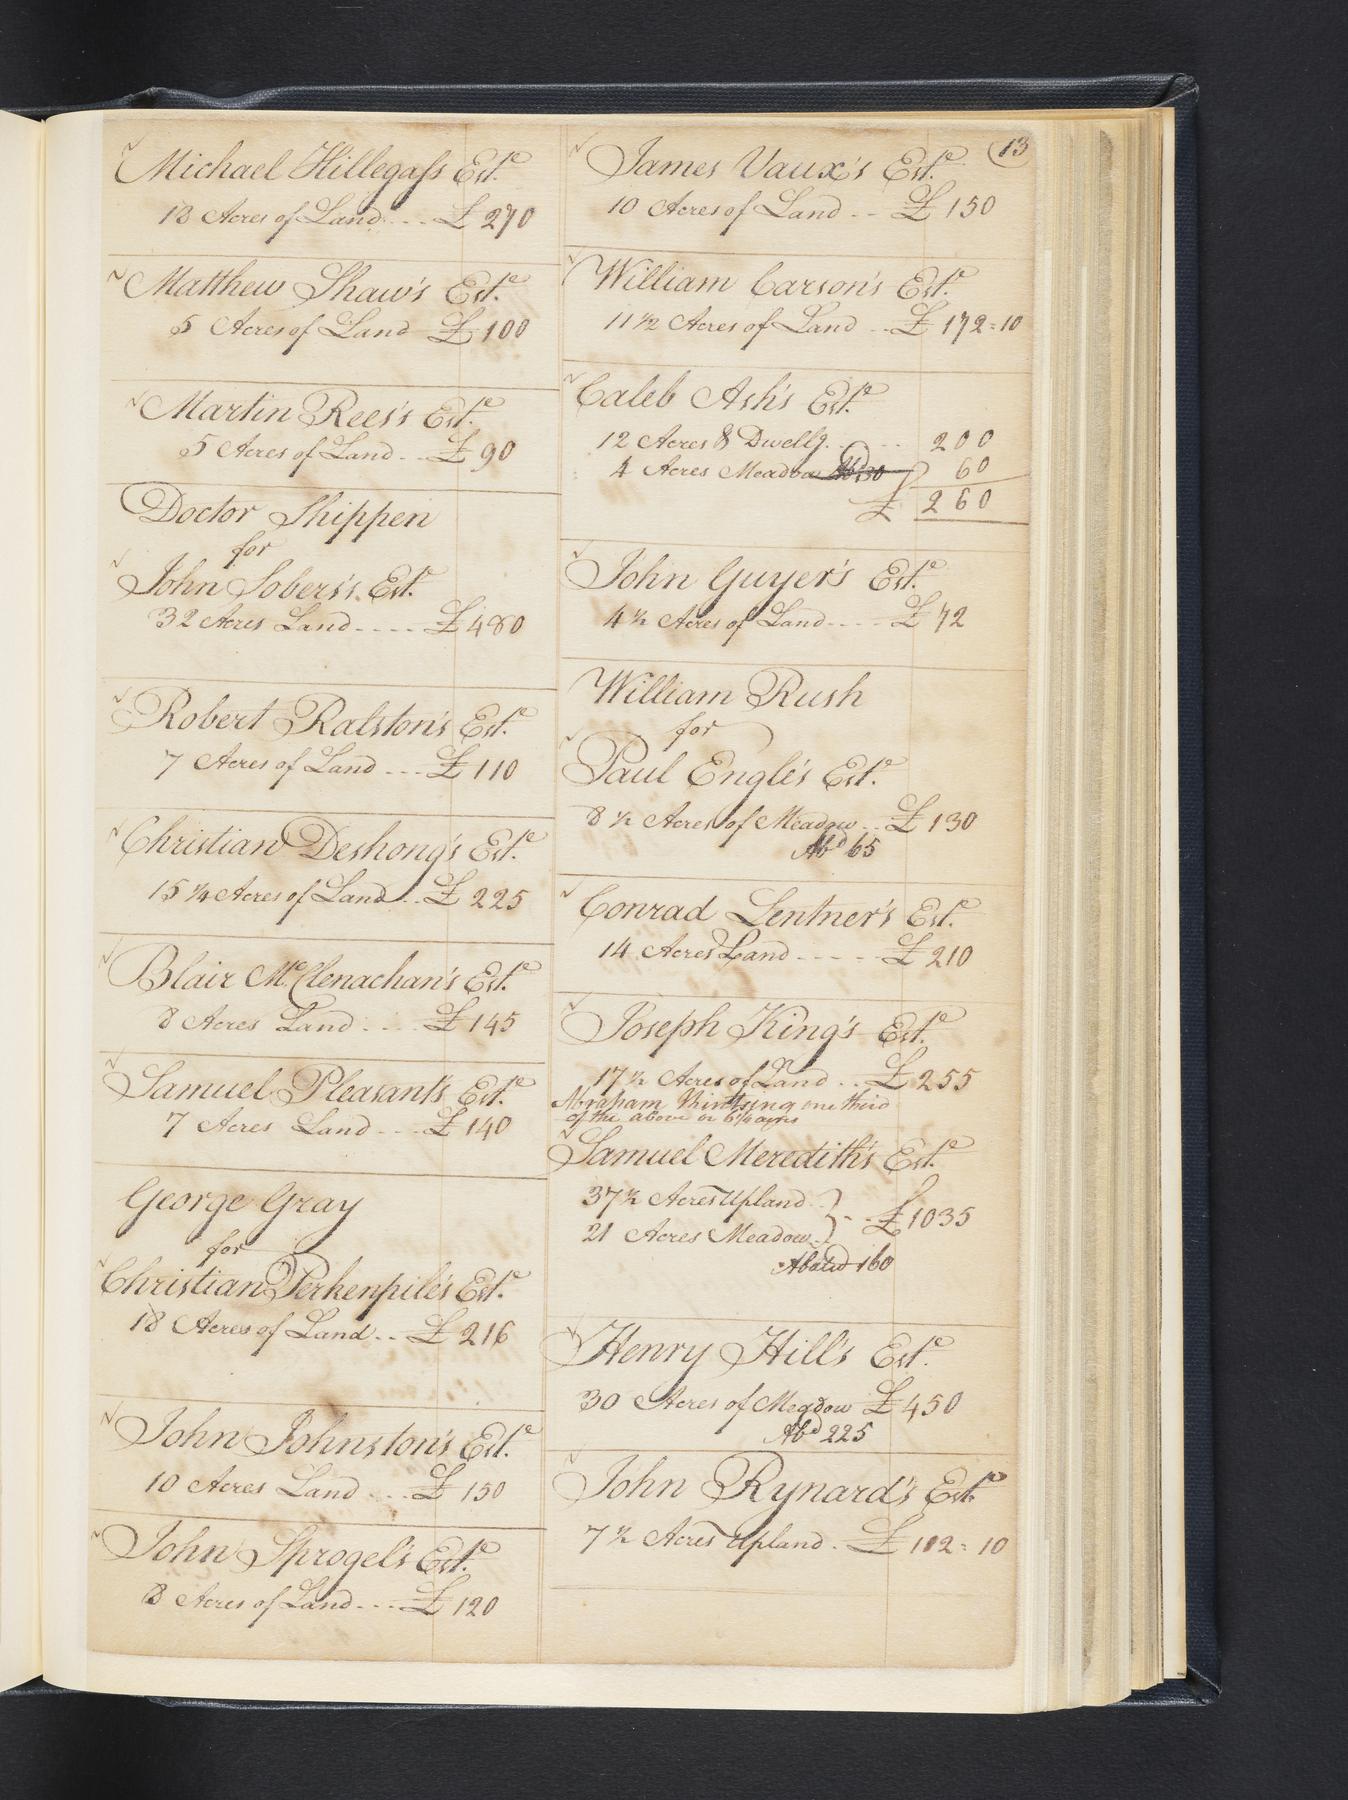 Michael Hillegass Est.e
18 Acres of Land .... £ 270
Matthew Shaw's Est.e
5 Acres of Land £ 100
Martin Rees's Est.e
5 Acres of Land .. £ 90
Doctor Shippen
for
John Sobers's Est.e
32 Acres Land ..... £ 480
Robert Ralston's Est.e
7 Acres of Land ... £ 110
Christian Deshong's Est.e
15 1/4 Acres of Land .. £ 225
Blair McClenachan's Est.e
8 Acres Land .... £ 145
Samuel Pleasant's Est.e
7 Acres Land ... £ 140
George Gray
for
Christian Perkenpile's Est.e
18 Acres of Land .. £ 216
John Johnston's Est.e
10 Acres Land ... £ 150
John Sprogel's Est.e
8 Acres of Land ... £ 120
13
James Vaux's Est.e
10 Acres of Land .. £ 150
William Carson's Est.e
11 1/2 Acres of Land .. £ 172=10
Caleb Ash's Est.e
12 Acres & Dwellg. ... 200
4 Acres Meadow Abd 30 60
£ 260
John Guyer's Est.e
4 1/2 Acres of Land .... £ 72
William Rush
for
Paul Engle's Est.e
8 1/2 Acres of Meadow .. £ 130
Abd 65
Conrad Lentner's Est.e
14 Acres Land ..... £ 210
Joseph King's Est.e
17 1/2 Acres of Land .. £ 255
Abraham one third
of the above or acres
Samuel Meredith's Est.e
37 1/2 Acres Upland
21 Acres Meadow } .. £ 1035
Abated 160
Henry Hill's Est.e
30 Acres of Meadow £ 450
Abd 225
John Rynard's Est.e
7 1/2 Acres Upland . £ 112=10